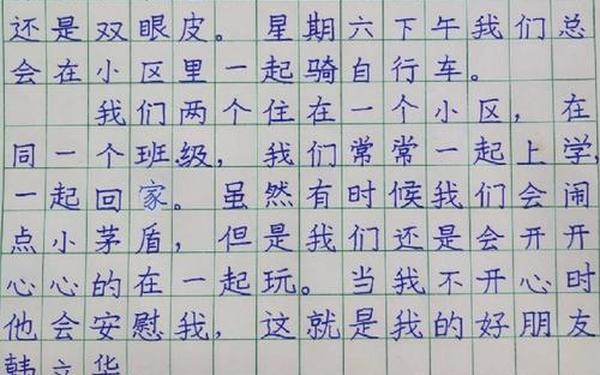 还是双眼皮。星期六下午我们总
会在小区里一起骑自行车。
我们两个住在一个小区，在
同一个班级，我们常常一起上学，
一起回家。虽然有时候我们会闹
点小茅盾，但是我们还是会开开
心心的在一起玩。当我不开心时
他会安慰我，这就是我的好朋友
韩立华